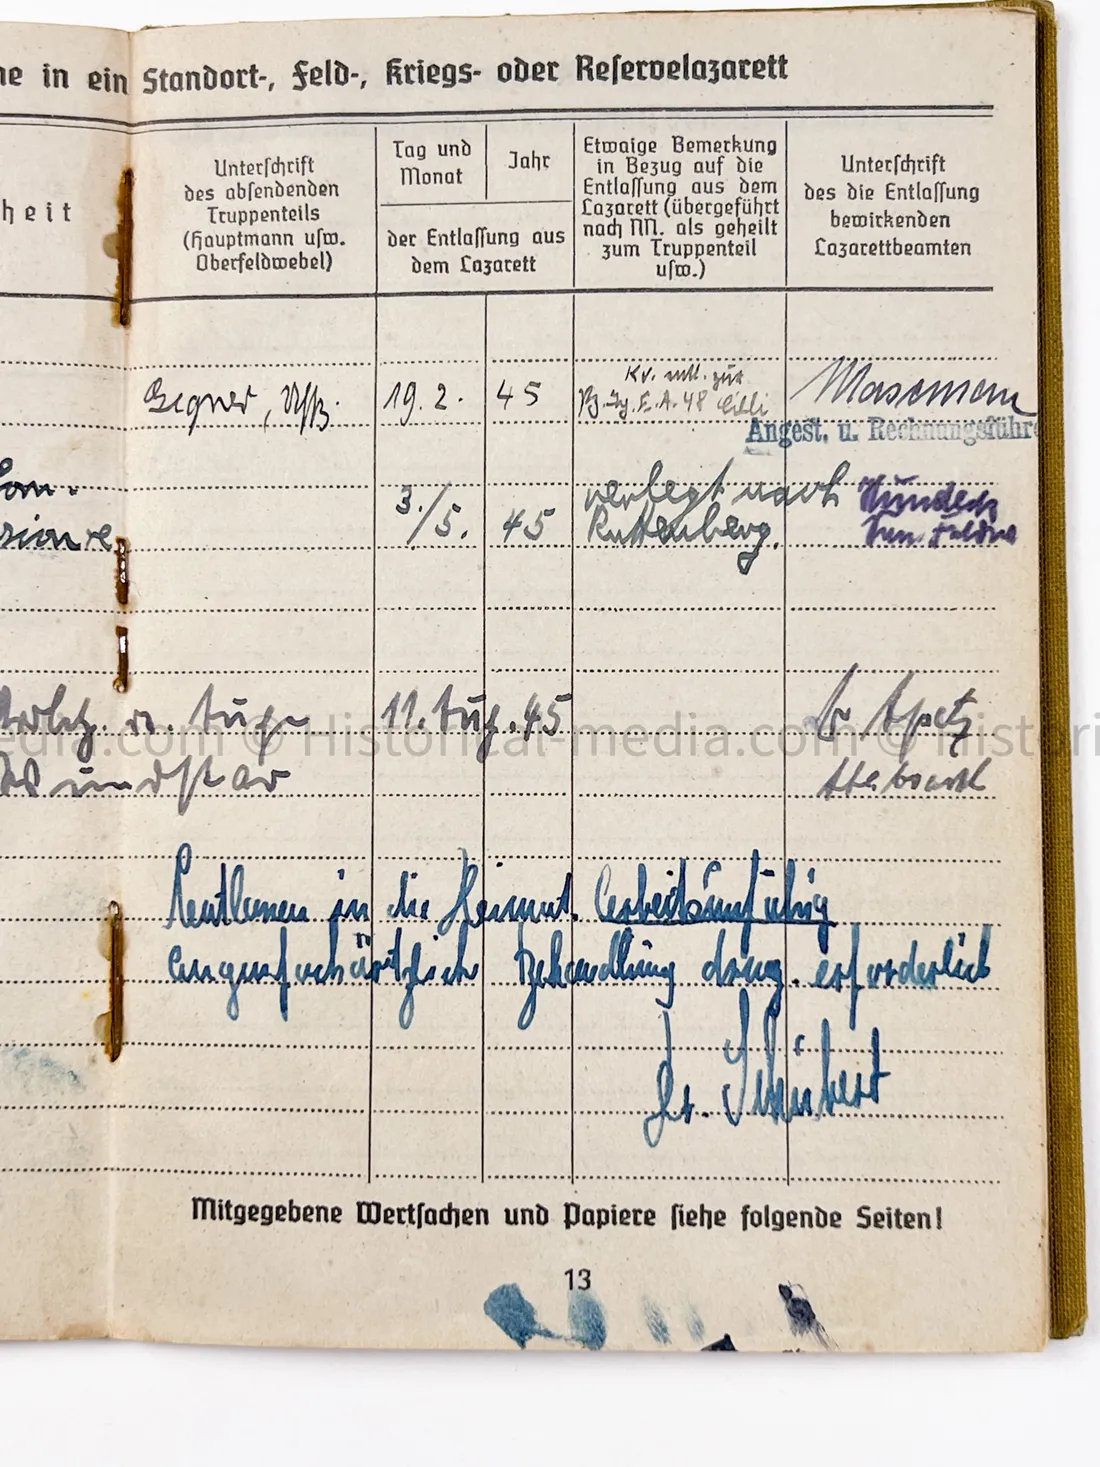 ne in ein Standort-, Feld-, Kriegs- oder Reservelazarett
heit
Unterschrift
des absendenden
Truppenteils
(Hauptmann usw.
Oberfeldwebel)
Tag und
Monat
Jahr
der Entlassung aus
dem Lazarett
Etwaige Bemerkung
in Bezug auf die
Entlassung aus dem
Lazarett (übergeführt
nach NN. als geheilt
zum Truppenteil
usw.)
Unterschrift
des die Entlassung
bewirkenden
Lazarettbeamten
19. 2. 45
Kv. zur
E. A. 48
Angest. u. Rechnungsführ
3./5. 45
verlegt nach
Kuttenberg.
11. Aug. 45
Dr
in die Heimat. Arbeitsunfähig
Behandlung drug. erforderlich
Dr. Schubert
Mitgegebene Wertsachen und Papiere siehe folgende Seiten!
13
edia.com © Historical-media.com © Histori